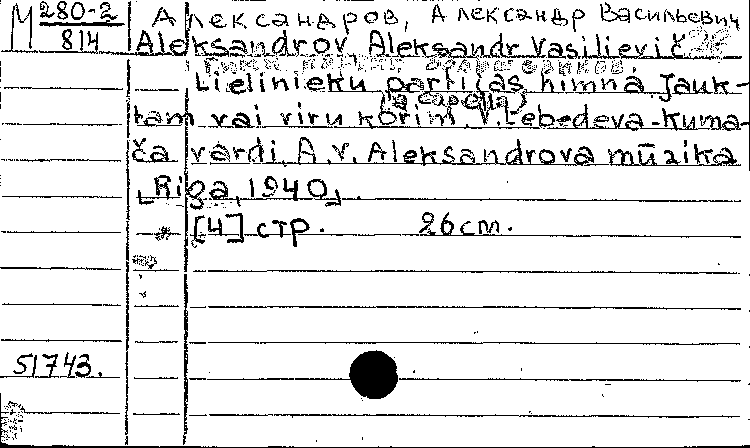 М 280-2
814
Александров, Александр Васильевич
Aleksandrov Aleksandr Vasilievič
Гимн партии большевиков.
Lielinieku partijas himna. Jauk-
(a capella)
tam vai viru korim. V. Lebedeva-Kuma-
ča vārdi, A. V. Aleksandrova mūzika
[Rīga, 1940]
[4] стр. 26 cm.
51743.